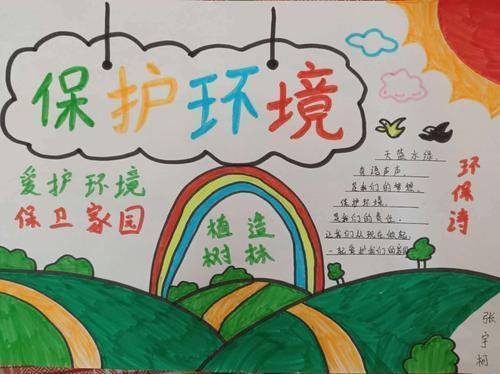 保护环境
爱护环境
保卫家园
植造
树林
环保诗
天蓝水绿,
鸟语声声,
是我们的梦想。
保护环境,
是我们的责任。
让我们从现在做起,
一起爱护我们的家园
张宇桐